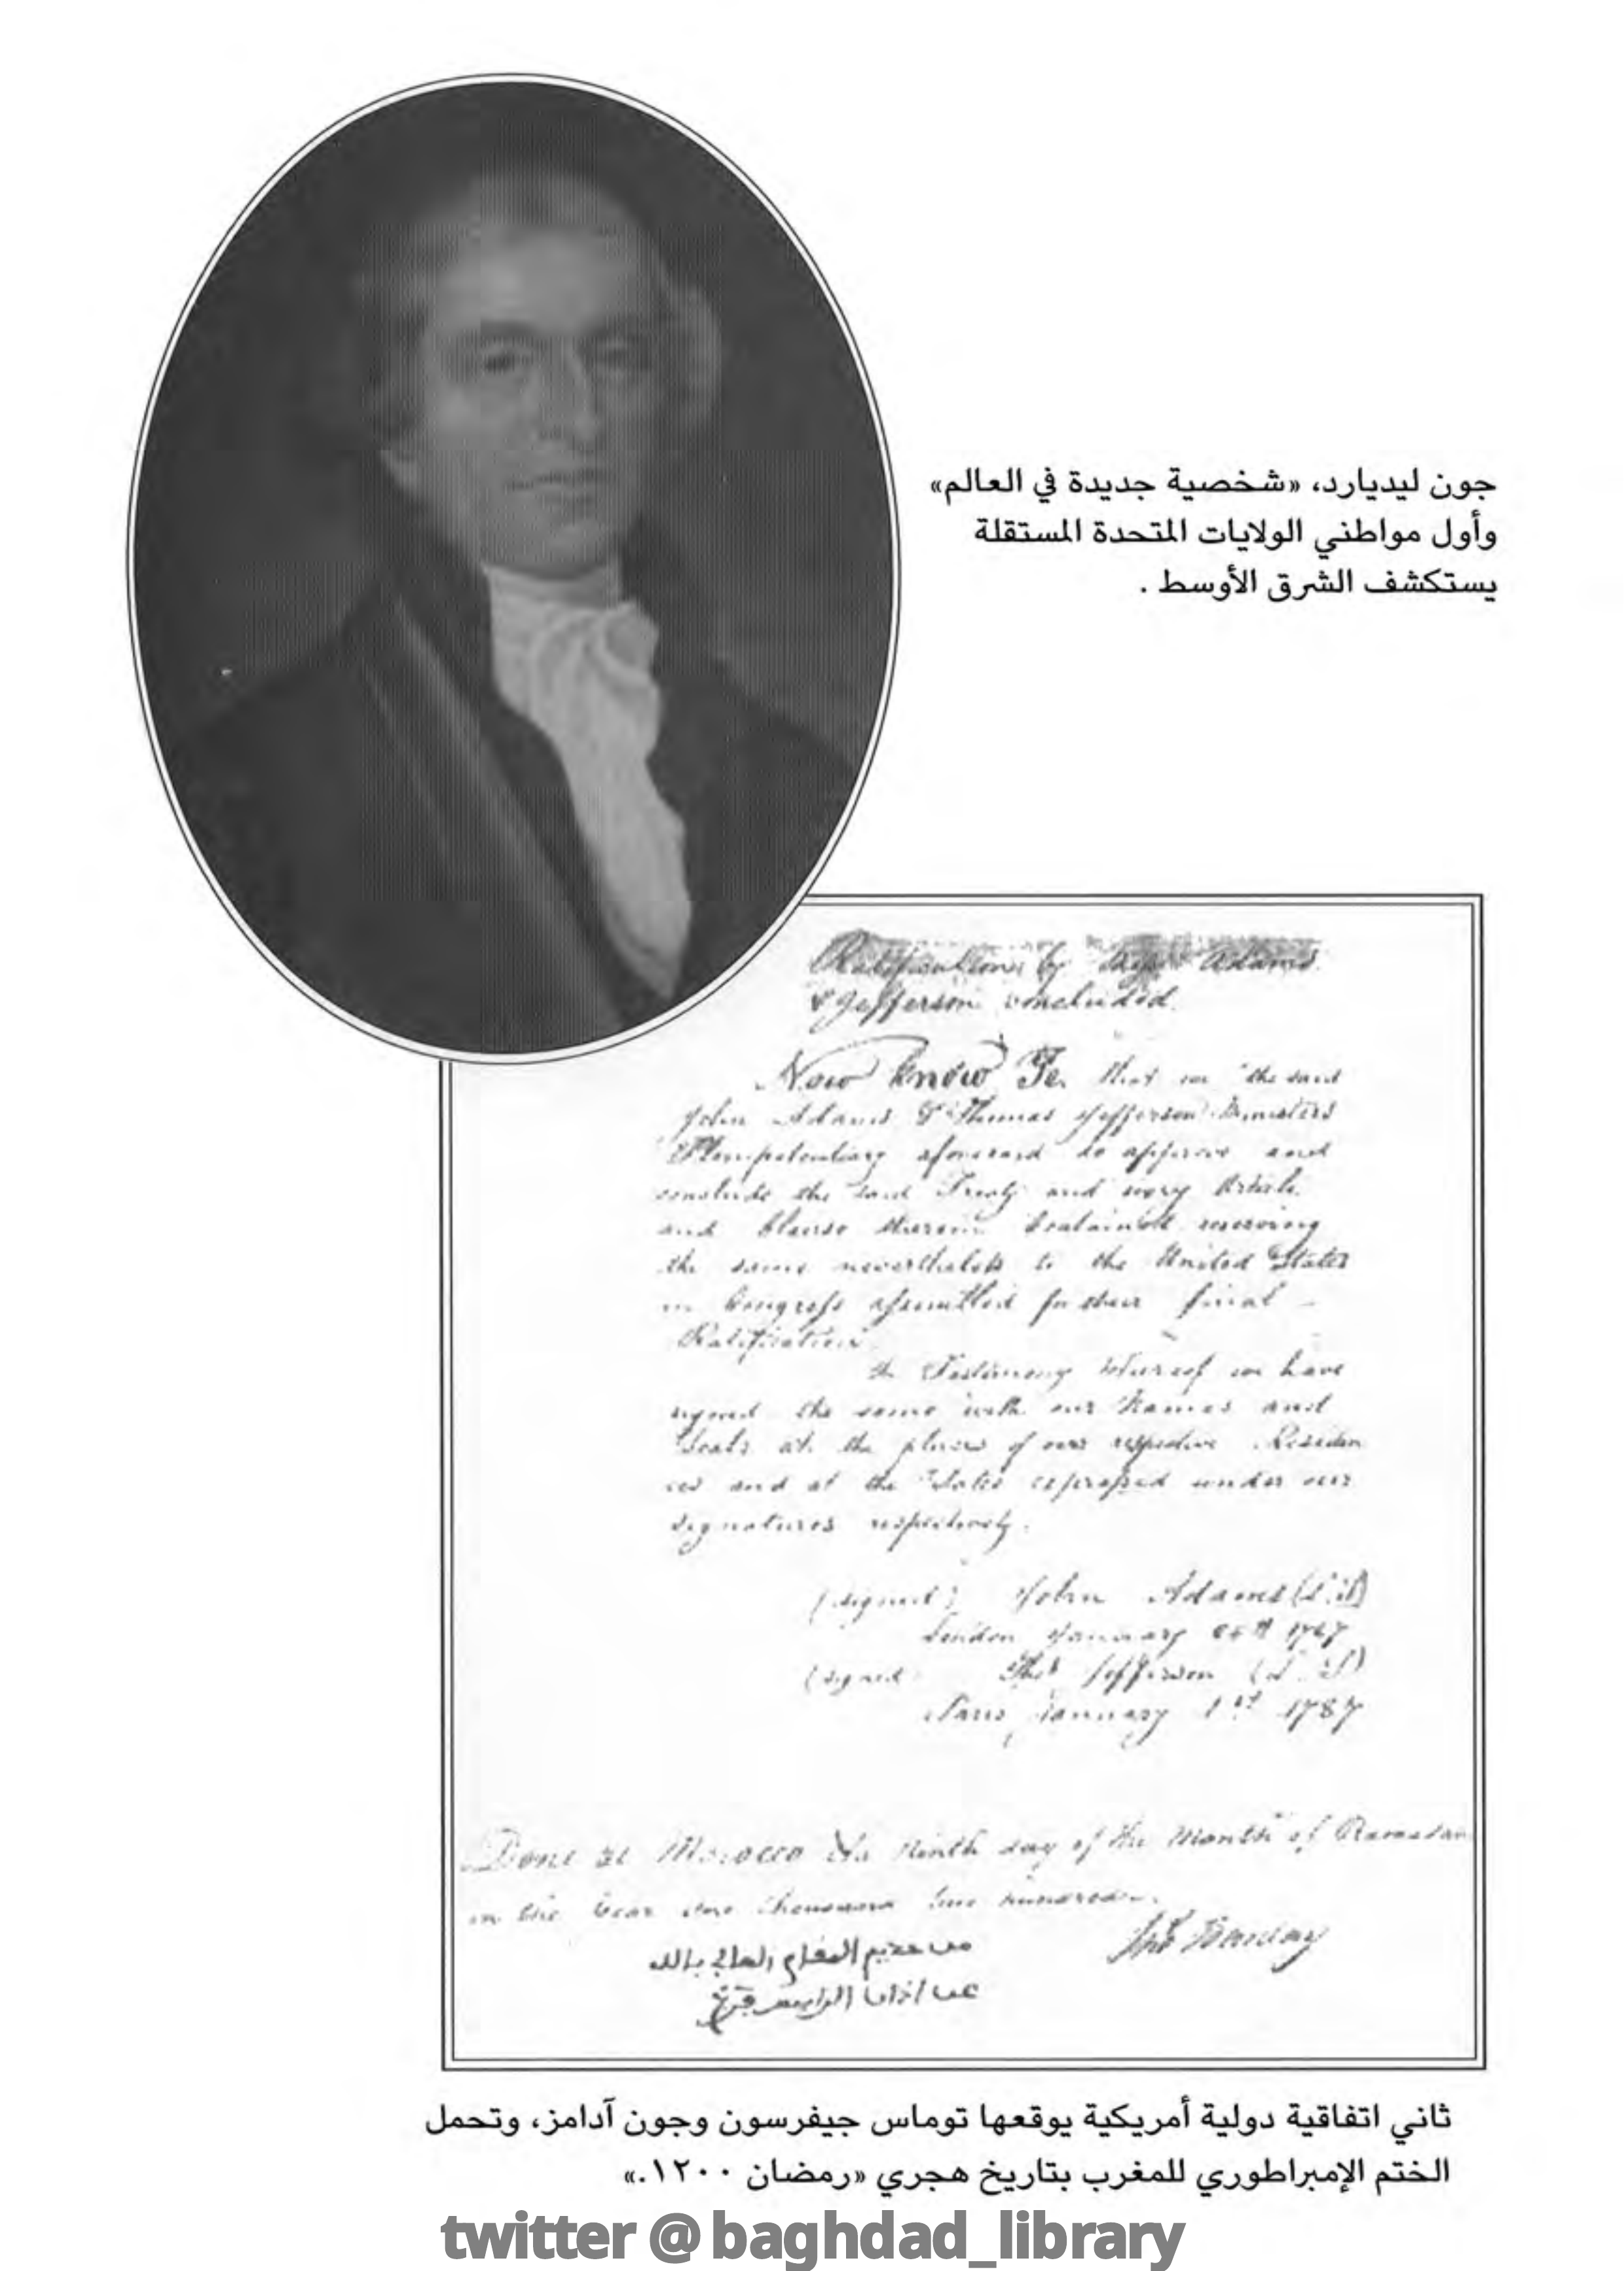 جون ليديارد، «شخصية جديدة في العالم»
وأول مواطني الولايات المتحدة المستقلة
يستكشف الشرق الأوسط .
Ratification by Adams
& Jefferson concluded.
Now know Ye that we the said
John Adams & Thomas Jefferson Ministers
Plenipotentiary aforesaid do approve and
conclude the said Treaty and every Article
and Clause therein contained reserving
the same nevertheless to the United States
in Congress assembled for their final
Ratification.
In Testimony whereof we have
signed the same with our Names and
Seals at the places of our respective Residen
ces and at the Dates expressed under our
signatures respectively.
(signed) John Adams (L.S)
London January 1787
(signed Jefferson (L.S)
Paris January 1st 1787
Done at Morocco the Ninth day of the Month of Ramadan
in the Year One thousand two hundred.
Barclay
ثاني اتفاقية دولية أمريكية يوقعها توماس جيفرسون وجون آدامز، وتحمل
الختم الإمبراطوري للمغرب بتاريخ هجري «رمضان ١٢٠٠.»
twitter @ baghdad_library